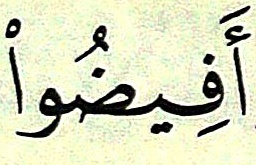 أَفِيضُواْ